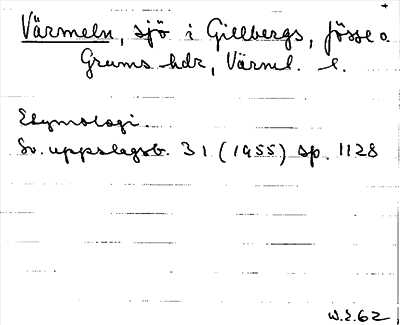 Värmeln, sjö i Gillbergs, Jösse o.
Grums hdr, Värml. l.
Etymologi.
Sv. uppslagsb. 31 (1955) sp. 1128
W.E. 62